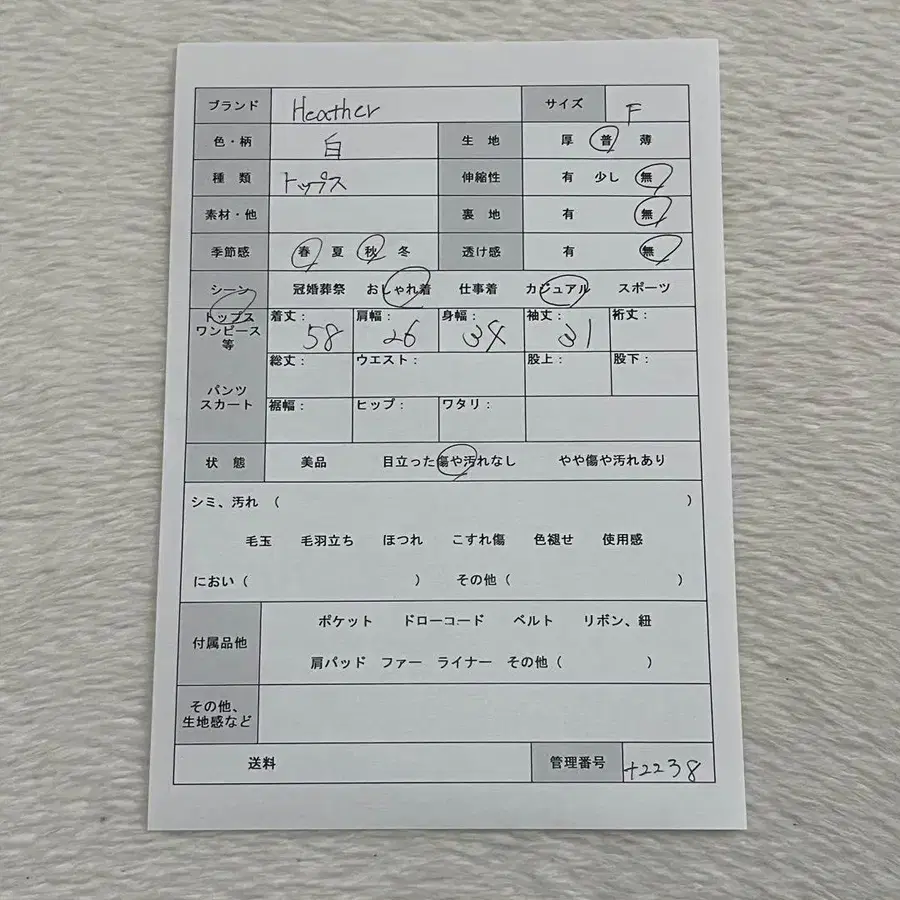 ブランド Heather サイズ F
色・柄 白 生 地 厚 普 薄
種 類 トップス 伸縮性 有 少し 無
素材・他 裏 地 有 無
季節感 春 夏 秋 冬 透け感 有 無
シーン 冠婚葬祭 おしゃれ着 仕事着 カジュアル スポーツ
トップス
ワンピース
等
着丈: 58 肩幅: 26 身幅: 34 袖丈: 31 裄丈:
パンツ
スカート
総丈: ウエスト: 股上: 股下:
裾幅: ヒップ: ワタリ:
状 態 美品 目立った傷や汚れなし やや傷や汚れあり
シミ、汚れ ( )
毛玉 毛羽立ち ほつれ こすれ傷 色褪せ 使用感
におい ( ) その他 ( )
付属品他 ポケット ドローコード ベルト リボン、紐
肩パッド ファー ライナー その他 ( )
その他、
生地感など
送料 管理番号 +2238